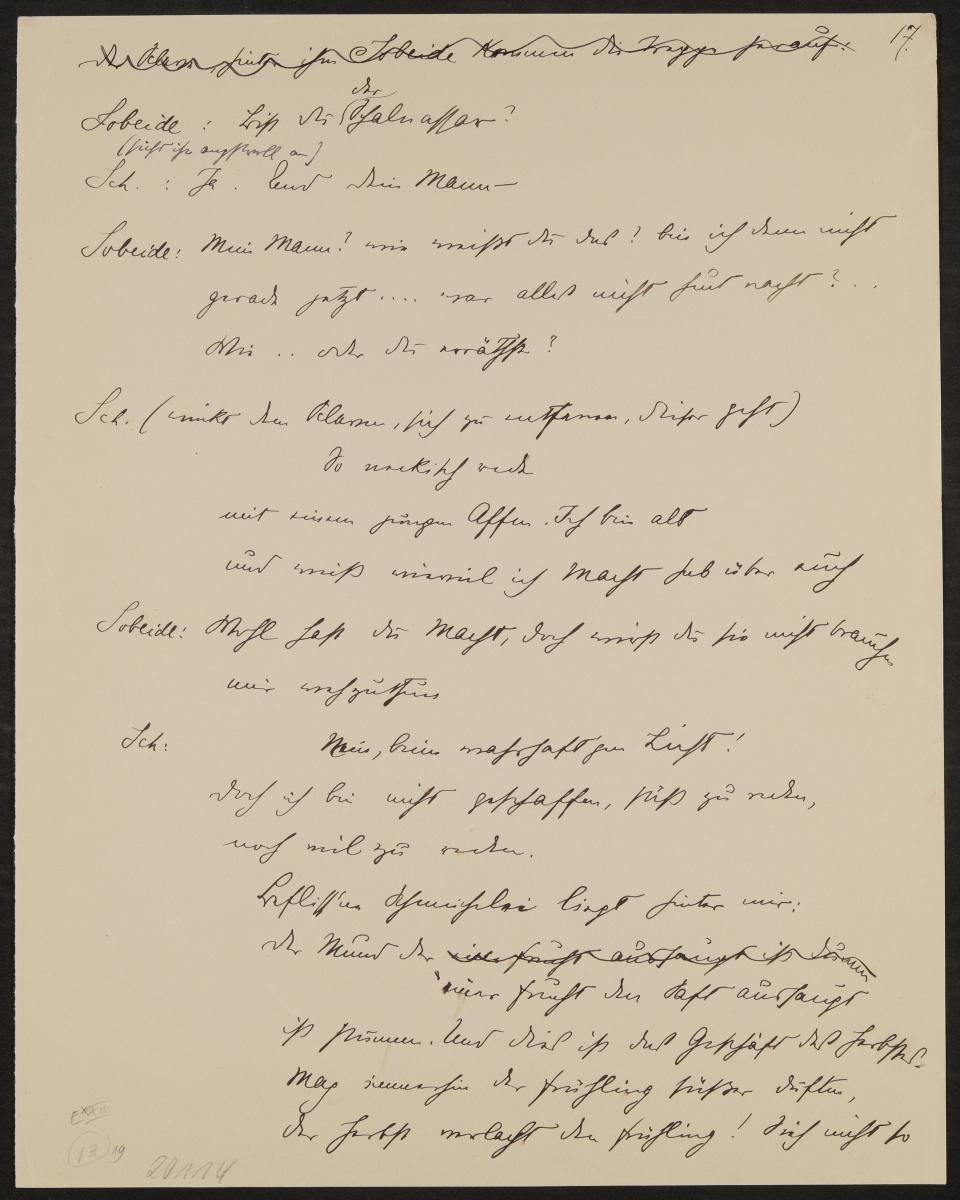 17.
Der Sclave, hinter ihm Sobeide kommen die Treppe herauf.
der
Sobeide : Bist du Schalnassar?
(sieht ihn angstvoll an)
Sch. : Ja. Und dein Mann –
Sobeide: Mein Mann? wie weißt du das? bin ich denn nicht
gerade jetzt .... war alles nicht heut nacht? ..
Wie .. oder du erräthst?
Sch. (winkt dem Sclaven, sich zu entfernen, dieser geht)
So neckisch rede
mit einem jungen Affen. Ich bin alt
und weiß wieviel ich Macht hab über euch
Sobeide: Wohl hast du Macht, doch wirst du sie nicht brauchen
mir wehzuthun
Sch: Nein, beim wahrhaftgen Licht!
doch ich bin nicht geschaffen, süß zu reden,
noch viel zu reden.
Beflissne Schmeichelei liegt hinter mir:
der Mund der einer Frucht aussaugt ist stumm
einer Frucht den Saft aussaugt
ist stumm. Und dies ist das Geschäft des Herbstes.
Mag immerhin der Frühling süßer duften,
der Herbst verlacht den Frühling! Sieh nicht so
13
19
29114